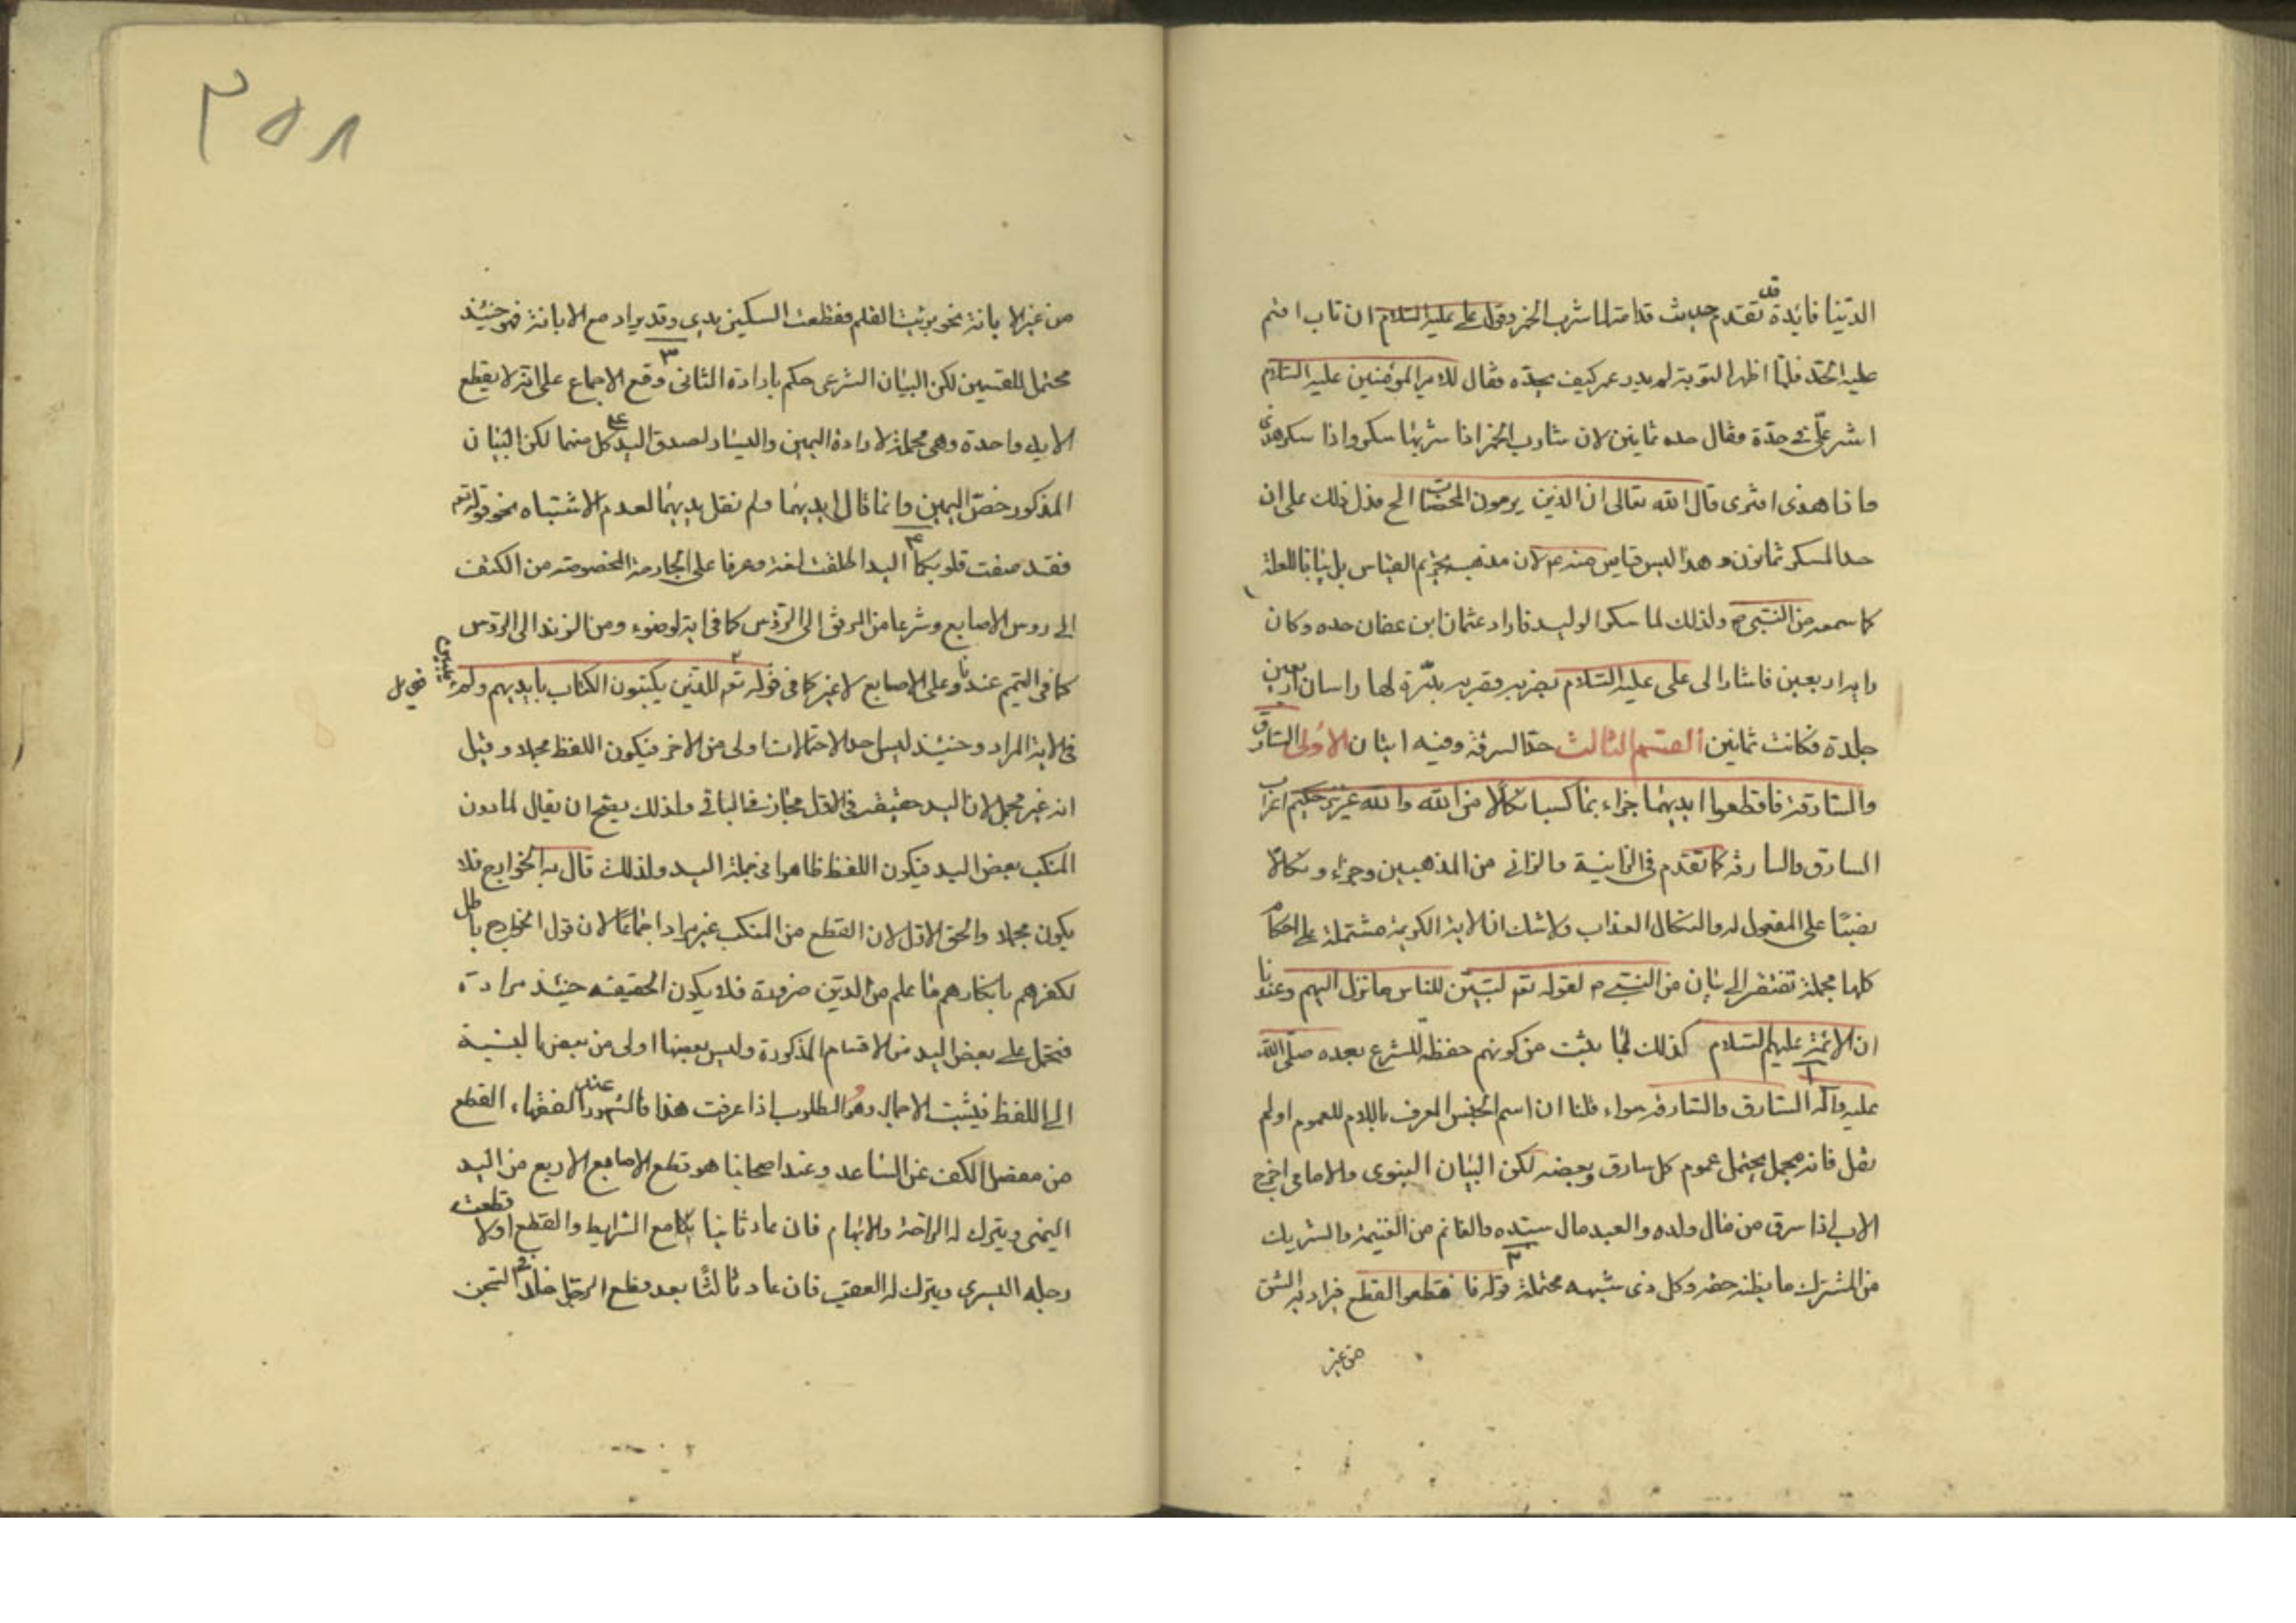 الدنيا فائدة قد تقدم حديث قدامة لما شرب الخمر وقول علي عليه السلام ان تاب اقم
عليه الحد فلما اظهر التوبة لم يدر عمر كيف يحده فقال لامير المؤمنين عليه السلام
اشر علي في حده فقال حده ثمانين لان شارب الخمر اذا شربها سكر واذا سكر هذى
واذا هذى افترى قال الله تعالى ان الذين يرمون المحصنات الخ فدل ذلك على ان
حد المسكر ثمانون و هذا ليس قياس منه ع لان مذهبه تحريم القياس بل بيانا للعلة
كما سمعه من النبي ص ولذلك لما سكر الوليد فاراد عثمان ابن عفان حده وكان
رايه اربعين فاشار الى علي عليه السلام بضربه فضربه بدرة لها راسان اربعين
جلدة فكانت ثمانين القسم الثالث حد السرقة وفيه ايتان الاولى السارق
والسارقة فاقطعوا ايديهما جزاء بما كسبا نكالا من الله والله عزيز حكيم اعراب
السارق والسارقة كما تقدم في الزانية والزاني من المذهبين وجزاء ونكالا
نصبا على المفعول له والنكال العذاب ولا شك ان الاية الكريمة مشتملة على احكام
كلها مجملة تفتقر الى بيان من النبي ص لقوله تع لتبين للناس ما نزل اليهم وعندنا
ان الائمة عليهم السلام كذلك لما ثبت من كونهم حفظة للشرع بعده صلى الله
عليه واله ١ السارق والسارقة سواء قلنا ان اسم الجنس المعرف باللام للعموم او لم
نقل فانه مجمل يحتمل عموم كل سارق وبعضه لكن البيان النبوي والامامي اخرج
الاب اذا سرق من مال ولده والعبد مال سيده والغانم من الغنيمة والشريك
من المشترك ما يظنه حقه وكل ذي شبهه محتملة ٢ قوله فاقطعوا القطع يراد به الشق
من غير
٣٥٨
من غير الابانة نحو بريت القلم فقطعت السكين يدي وقد يراد مع الابانة فهو حينئذ
محتمل للقسمين لكن البيان الشرعي حكم بارادة الثاني ٣ وقع الاجماع على انه لا يقطع
الا يد واحدة وهي مجملة لارادة اليمين واليسار لصدق اليد على كل منهما لكن البيان
المذكور خص اليمين وانما قال ايديهما ولم نقل يديهما لعدم الاشتباه نحو قوله تع
فقد صغت قلوبكما ٤ اليد اطلقت لغة وعرفا على الجارحة المخصوصة من الكتف
الى روس الاصابع وشرعا من المرفق الى الرؤس كما في اية الوضوء ومن الزند الى الرؤس
كما في التيمم عندنا وعلى الاصابع لا غير كما في قوله تع للذين يكتبون الكتاب بايديهم ولم يتبين
في الاية المراد وحينئذ ليس احد الاحتمالات اولى من الاخر فيكون اللفظ مجملا وقيل
انه غير مجمل لان اليد حقيقة في الاول مجاز في الباقي ولذلك يصح ان يقال لما دون
المنكب بعض اليد فيكون اللفظ ظاهرا في جملة اليد ولذلك قال به الخوارج فلا
يكون مجملا والحق الاول لان القطع من المنكب غير مراد اجماعا لان قول الخوارج باطل
لكفرهم بانكارهم ما علم من الدين ضرورة فلا يكون الحقيقة حينئذ مرادة
فتحمل على بعض اليد من الاقسام المذكورة وليس بعضها اولى من بعض بالنسبة
الى اللفظ فيثبت الاجمال وهو المطلوب اذا عرفت هذا فالمشهور عند الفقهاء القطع
من مفصل الكف عن الساعد وعند اصحابنا هو قطع الاصابع الاربع من اليد
اليمنى ويترك له الراحة والابهام فان عاد ثانيا بكامع الشرايط والقطع اولا قطعت
رجله اليسرى ويترك له العقب فان عاد ثالثا بعد قطع الرجل خلد في السجن